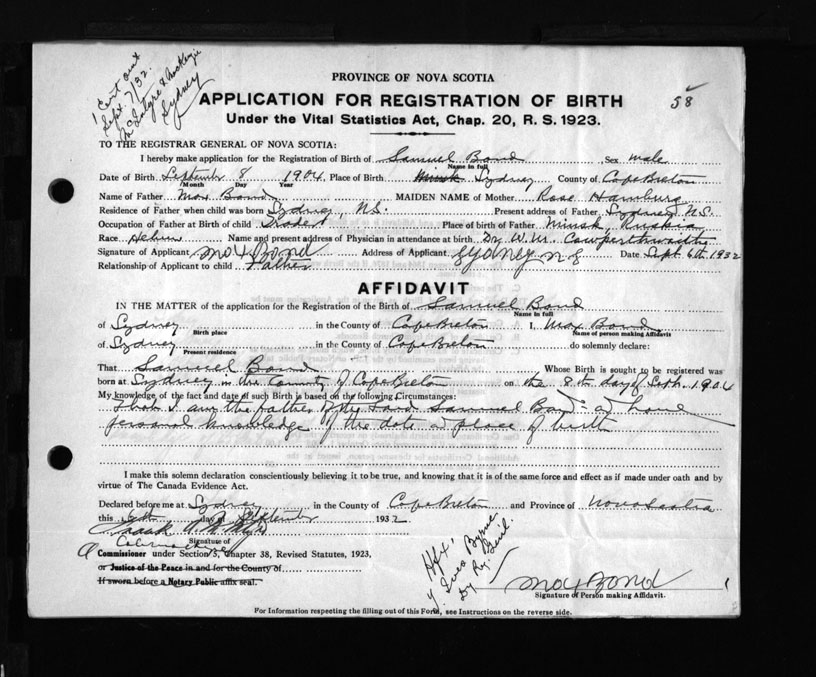 1 Cert out
Sept. 7/32.
McIntyre & MacKenzie
Sydney
58
PROVINCE OF NOVA SCOTIA
APPLICATION FOR REGISTRATION OF BIRTH
Under the Vital Statistics Act, Chap. 20, R. S. 1923.
TO THE REGISTRAR GENERAL OF NOVA SCOTIA:
I hereby make application for the Registration of Birth of Samuel Bond Sex male
Name in full
Date of Birth September 8 1904 Place of Birth Minsk Sydney County of Cape Breton
Month Day Year
Name of Father Max Bond MAIDEN NAME of Mother Rose Hamburg
Residence of Father when child was born Sydney, N.S. Present address of Father Sydney N.S.
Occupation of Father at Birth of child Trader Place of Birth of Father Minsk, Russia
Race Hebrew Name and present address of Physician in attendance at birth Dr W. M. Cowperthwaite
Signature of Applicant Max Bond Address of Applicant Sydney N S Date Sept 6th 1932
Relationship of Applicant to child Father
AFFIDAVIT
IN THE MATTER of the application for the Registration of the Birth of Samuel Bond
Name in full
of Sydney in the County of Cape Breton I, Max Bond
Birth place Name of person making Affidavit
of Sydney in the County of Cape Breton do solemnly declare:
Present residence
That Samuel Bond Whose Birth is sought to be registered was
born at Sydney in the County of Cape Breton on the 8th day of Sept. 1904
My knowledge of the fact and date of such Birth is based on the following Circumstances:
That I am the father of the said Samuel Bond & have
personal knowledge of the date & place of birth
I make this solemn declaration conscientiously believing it to be true, and knowing that it is of the same force and effect as if made under oath and by
virtue of The Canada Evidence Act.
Declared before me at Sydney in the County of Cape Breton and Province of Nova Scotia
this 6th day of September 1932
Signature of
A Commissioner under Section 3, Chapter 38, Revised Statutes, 1923,
or Justice of the Peace in and for the County of
If sworn before a Notary Public affix seal.
Hfx,
Dy Reg. Genl.
Max Bond
Signature of Person making Affidavit.
For Information respecting the filling out of this Form, see Instructions on the reverse side.